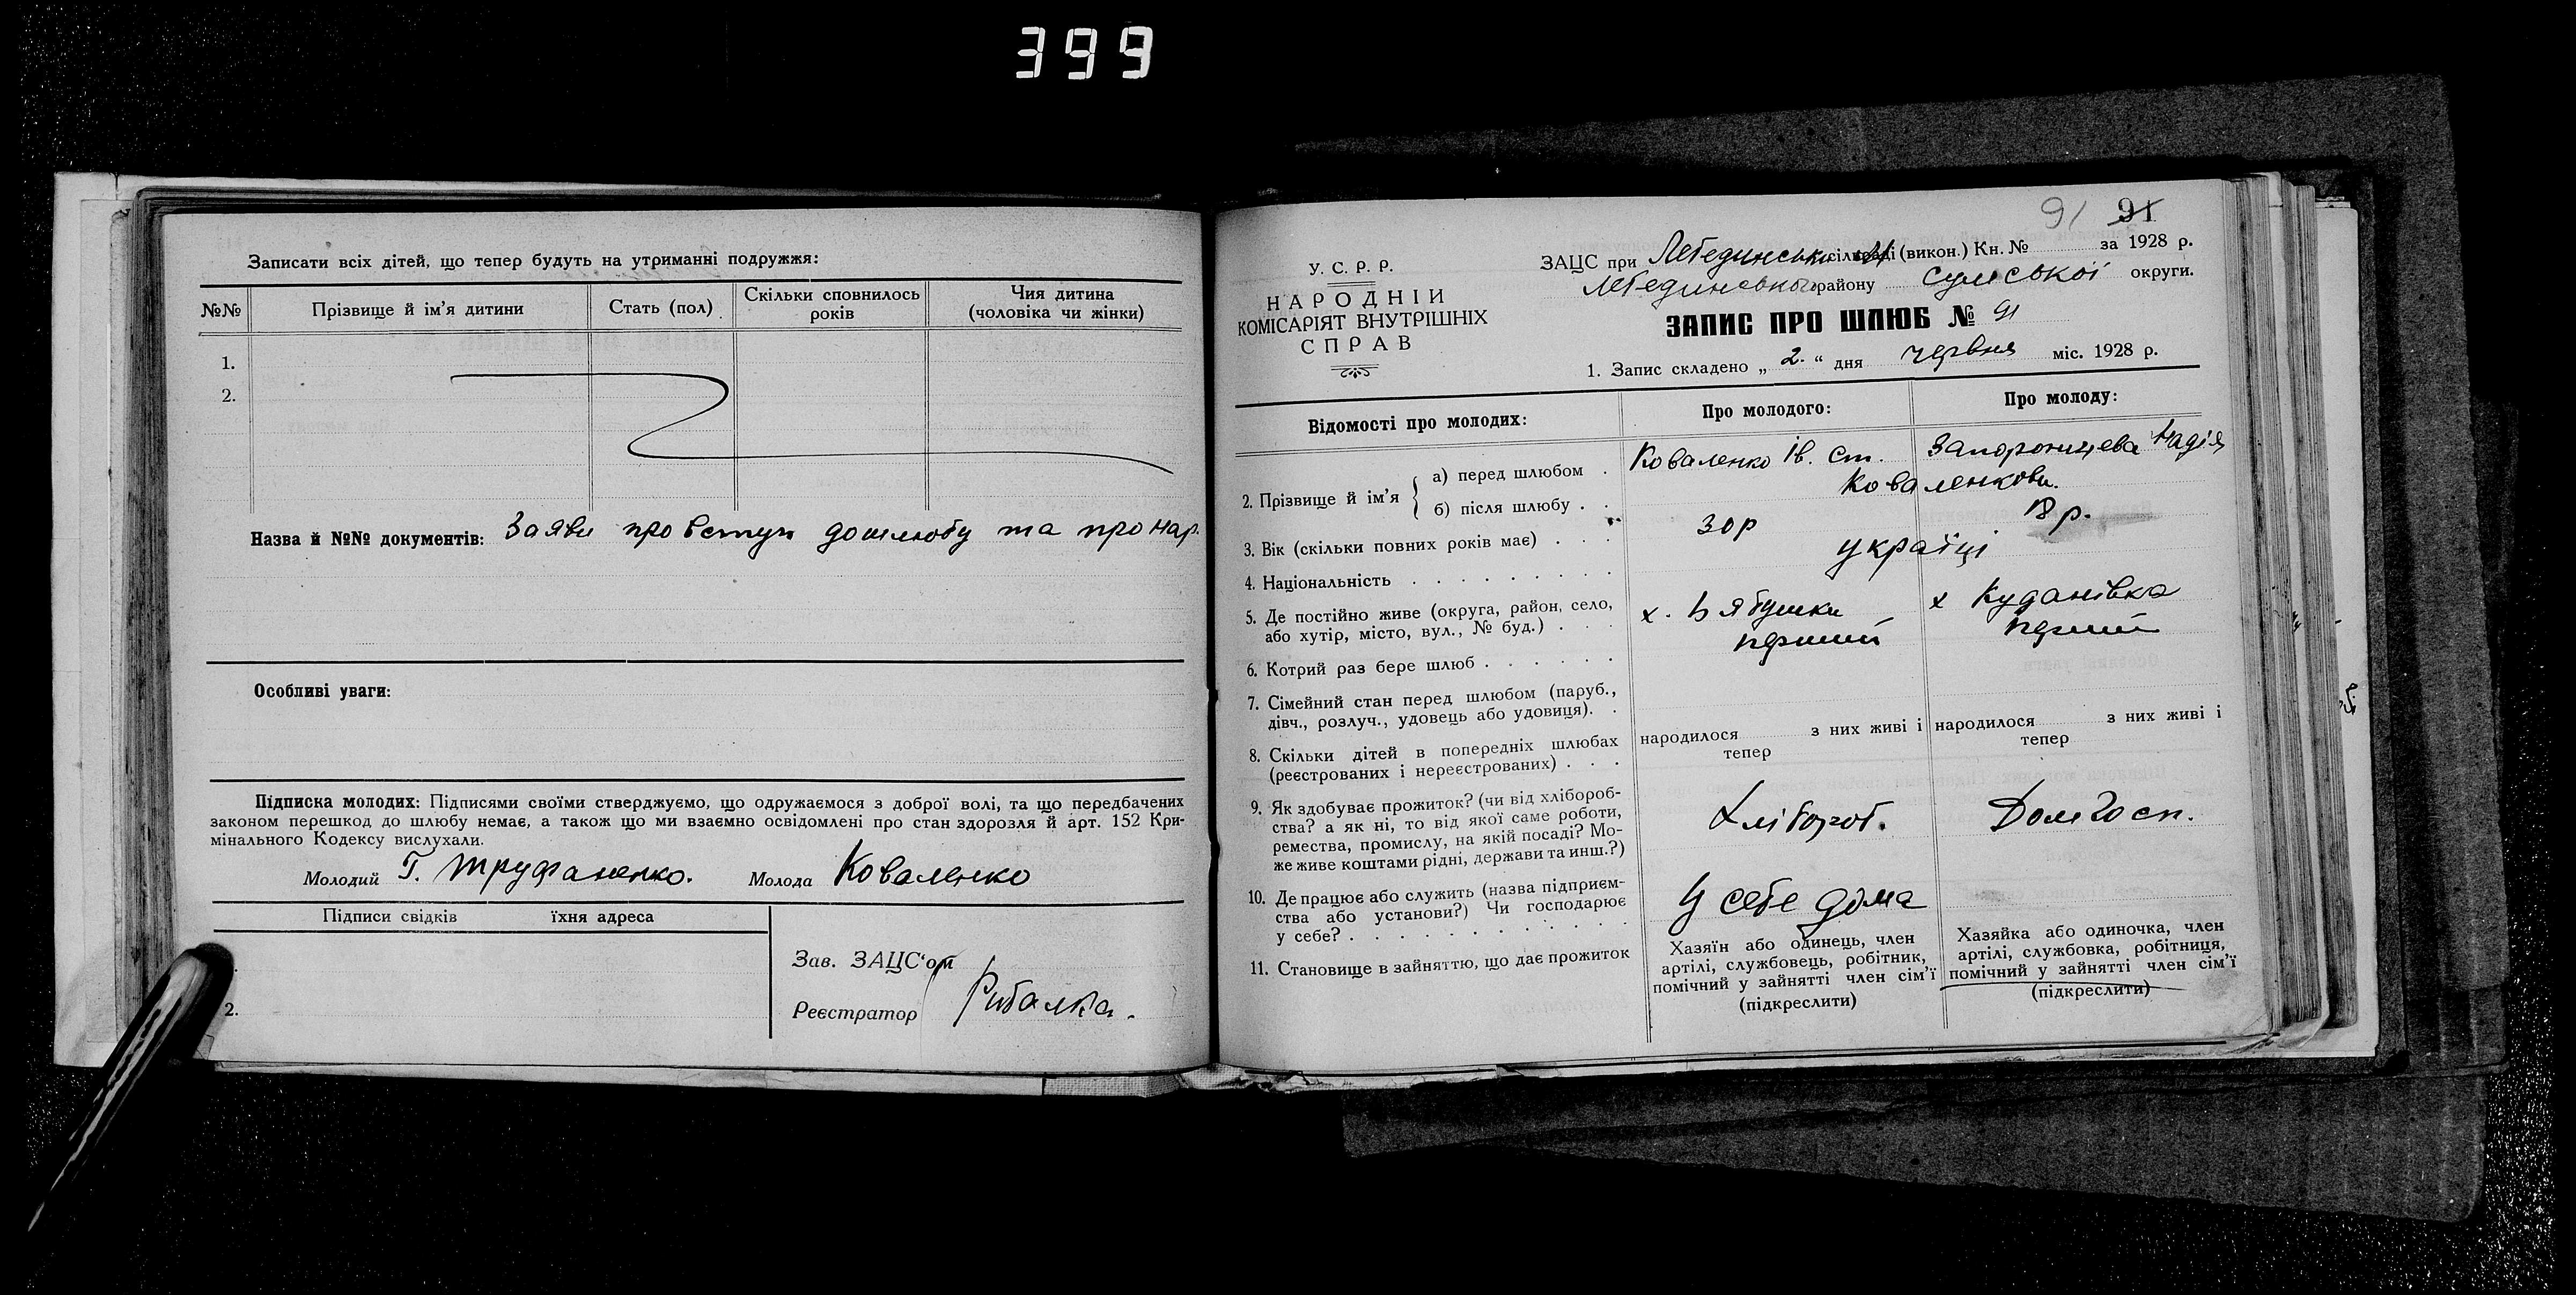 399
Записати всіх дітей, що тепер будуть на утриманні подружжя:
№№ Прізвище й ім'я дитини Стать (пол) Скільки сповнилось років Чия дитина (чоловіка чи жінки)
1.
2.
Назва й №№ документів: Заяви про вступ до шлюбу та про нар.
Особливі уваги:
Підписка молодих: Підписями своїми стверджуємо, що одружаємося з доброї волі, та що передбачених
законом перешкод до шлюбу немає, а також що ми взаємно освідомлені про стан здоровля й арт. 152 Кри-
мінального Кодексу вислухали.
Молодий Г. Труфаненко. Молода Коваленко
Підписи свідків їхня адреса
2.
Зав. ЗАЦС'ом
Реєстратор Рибалка.
91 91
У. С. Р. Р.
НАРОДНІЙ
КОМІСАРІЯТ ВНУТРІШНІХ
СПРАВ
ЗАЦС при Лебединськім сільраді (викон.) Кн. № за 1928 р.
Лебединського району Сумської округи.
ЗАПИС ПРО ШЛЮБ № 91
1. Запис складено „ 2. “ дня червня міс. 1928 р.
Відомості про молодих: Про молодого: Про молоду:
2. Прізвище й ім'я
а) перед шлюбом . Коваленко Ів. Ст. Запорожцева Надія
б) після шлюбу . . Коваленкови.
3. Вік (скільки повних років має) . . . 30р 18 р.
4. Національність . . . . . . . . . українці
5. Де постійно живе (округа, район, село,
або хутір, місто, вул., № буд.) . . . х. Рябушки х Куданівка
6. Котрий раз бере шлюб . . . . . . перший перший
7. Сімейний стан перед шлюбом (паруб.,
дівч., розлуч., удовець або удовиця). .
8. Скільки дітей в попередніх шлюбах
(реєстрованих і нереєстрованих) . . .
народилося з них живі і тепер
народилося з них живі і тепер
9. Як здобуває прожиток? (чи від хлібороб-
ства? а як ні, то від якої саме роботи,
ремества, промислу, на якій посаді? Мо-
же живе коштами рідні, держави та инш.?)
Хлібороб. Дом госп.
10. Де працює або служить (назва підприєм-
ства або установи?) Чи господарює
у себе? . . . . . . . . . . . .
У себе дома
11. Становище в зайняттю, що дає прожиток
Хазяїн або одинець, член
артілі, службовець, робітник,
помічний у зайнятті член сім'ї
(підкреслити)
Хазяйка або одиночка, член
артілі, службовка, робітниця,
помічний у зайнятті член сім'ї
(підкреслити)